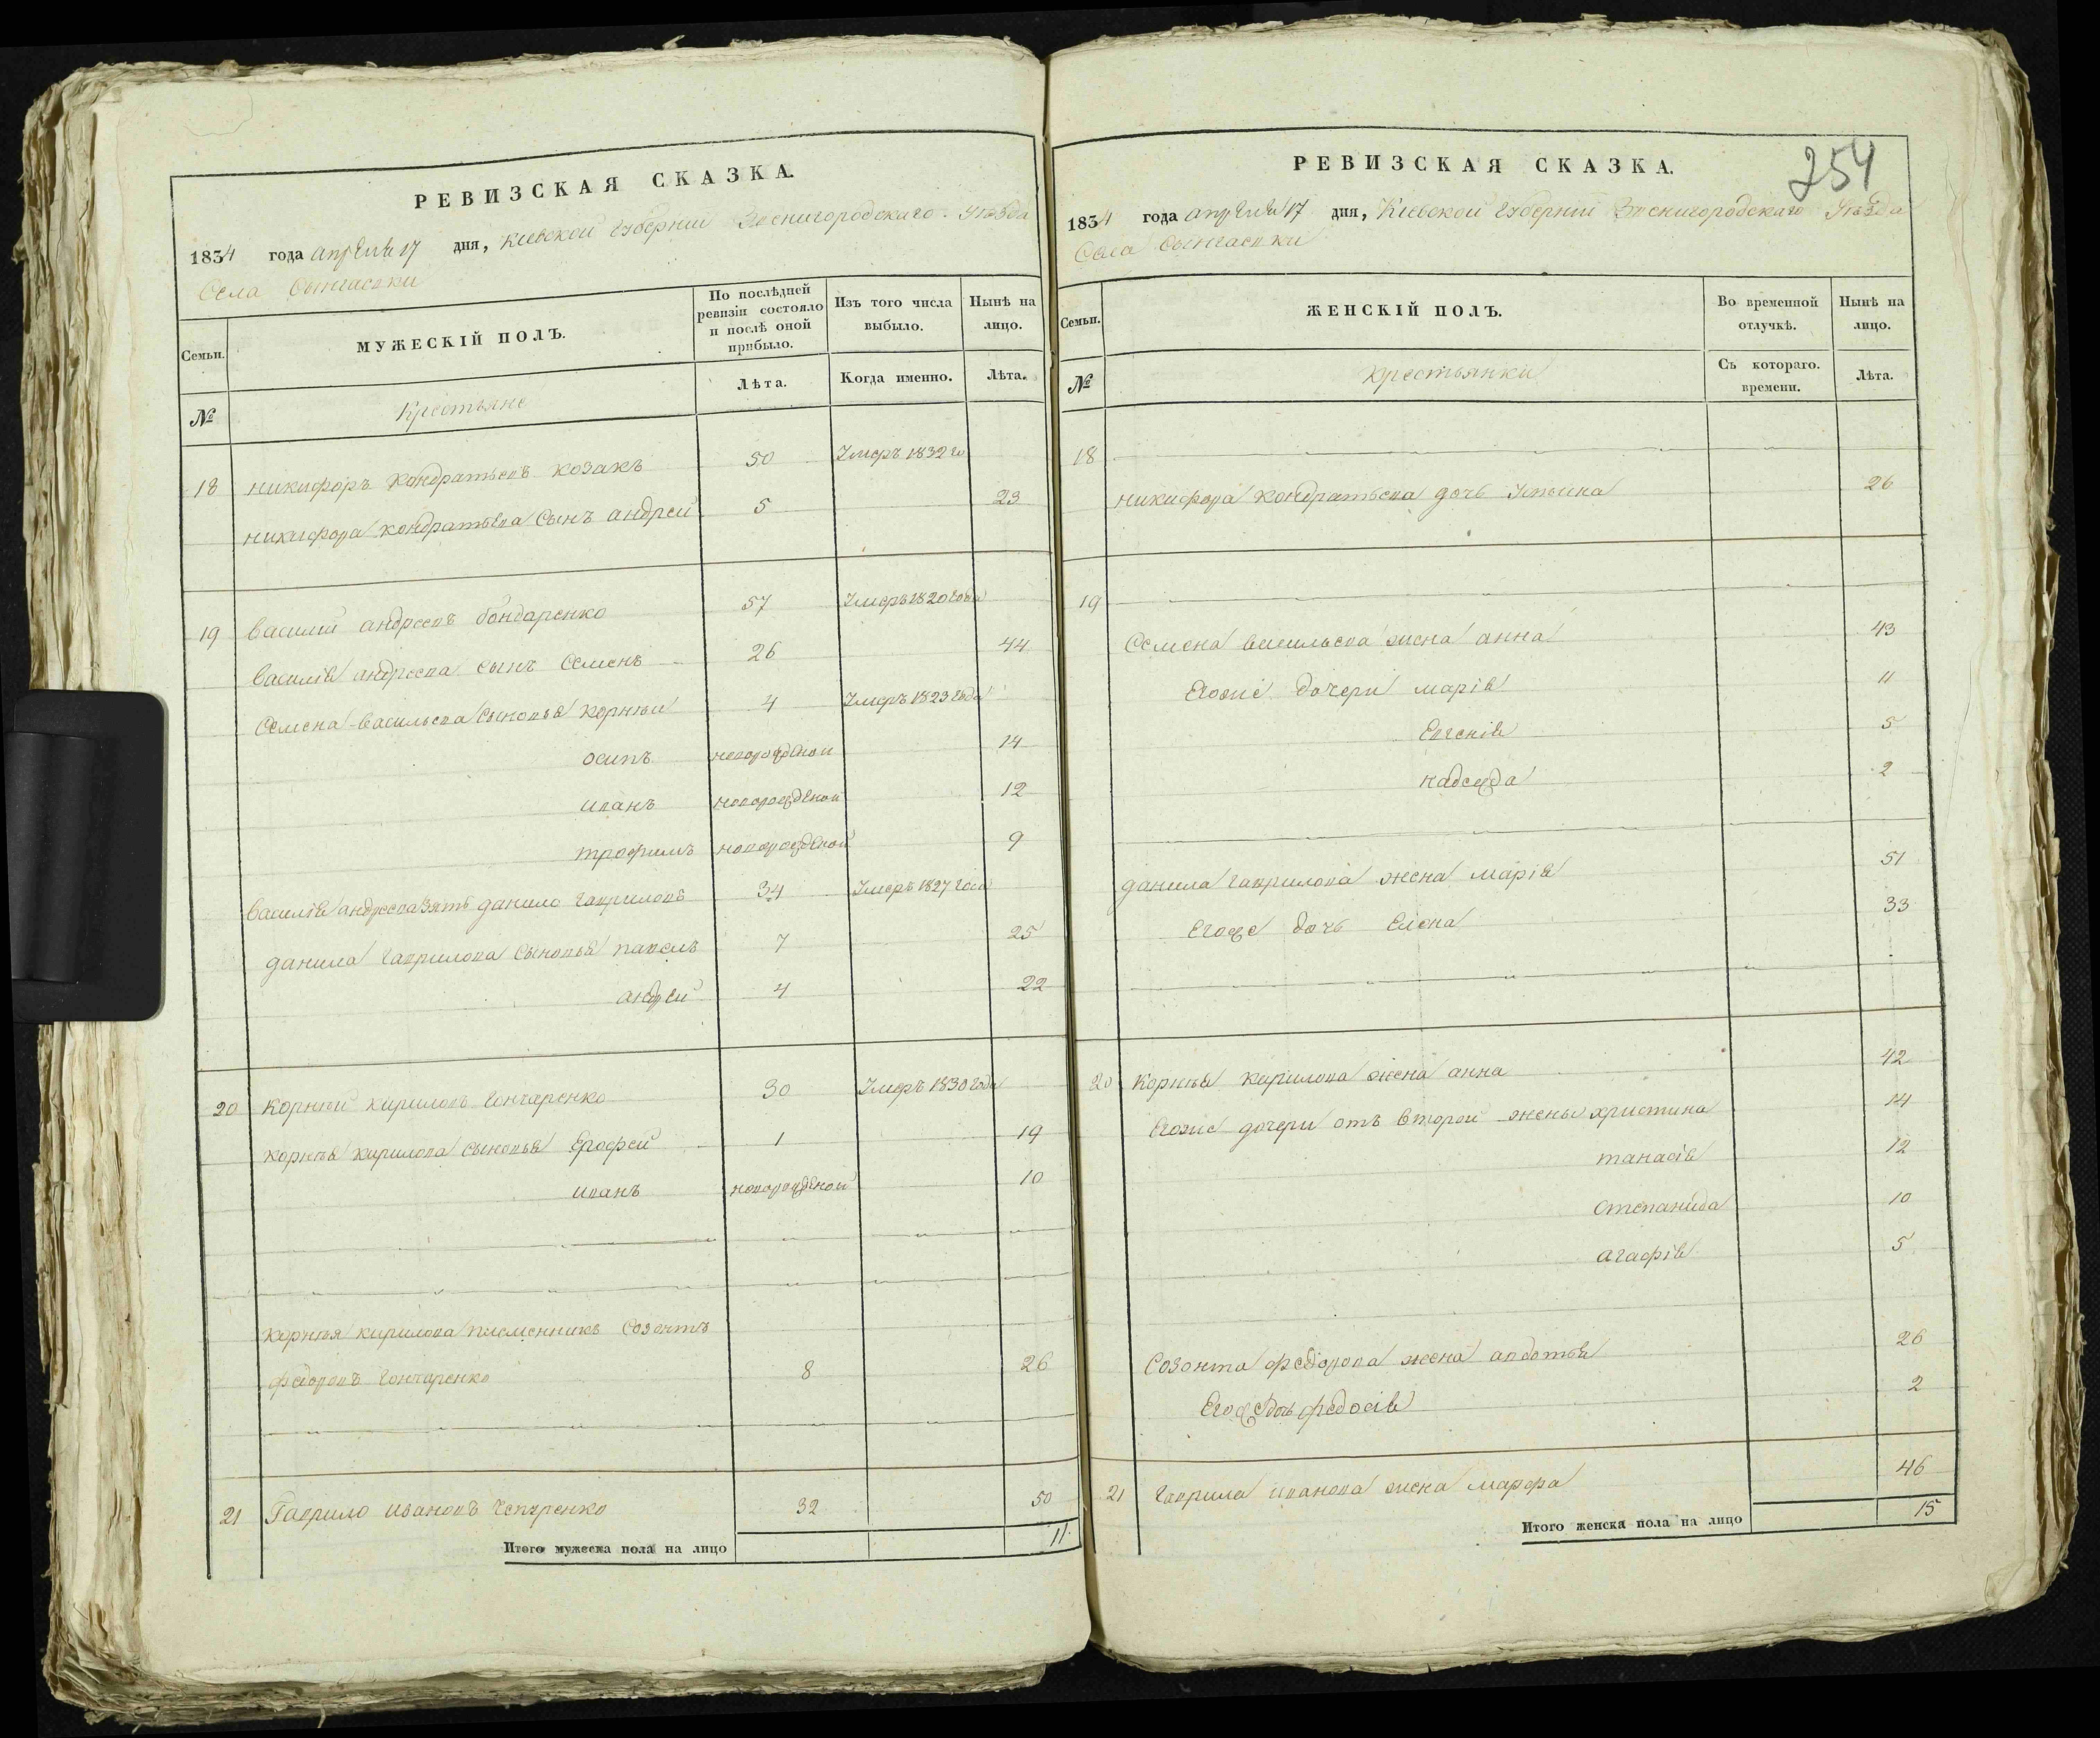 РЕВИЗСКАЯ СКАЗКА.
1834 года апреля 17 дня, Киевской Губернии Звенигородскаго Уезда
Села
Семьи. МУЖЕСКІЙ ПОЛЪ. По послѣдней ревизіи состояло и послѣ оной прибыло. Изъ того числа выбыло. Нынѣ на лицо.
№ Крестьяне Лѣта. Когда именно. Лѣта.
18 никифоръ Кондратьевъ козакъ 50 Умеръ 1832 го
никифора кондратьева сынъ андрей 5 23
19 Василий андреевъ бондаренко 57 Умеръ 1820 года
василія андреева сынъ Семенъ 26 44
Семена васильева сыновья корний 4 Умеръ 1823 года
осипъ новорожденой 14
иванъ новорожденой 12
трофимъ новорожденой 9
василія андреева зять данило гавриловъ 34 Умеръ 1827 года
данила гаврилова сыновья павелъ 7 25
андрей 4 22
20 Корней кириловъ Гончаренко 30 Умеръ 1830 года
корнея кирилова сыновья Ерофей 1 19
иванъ новорожденой 10
корнея кирилова племенникъ Созонтъ
федоровъ гончаренко 8 26
21 Гаврило Ивановъ Чепуренко 32 50
Итого мужеска пола на лицо 11
254
РЕВИЗСКАЯ СКАЗКА.
1834 года апреля 17 дня, Киевской Губернии Звенигородскаго Уезда
Села
Семьи. ЖЕНСКІЙ ПОЛЪ. Во временной отлучкѣ. Нынѣ на лицо.
№ крестьянки Съ котораго. времени. Лѣта.
18
никифора кондратьева дочь Устина 26
19
Семена васильева жена анна 43
Егоже дочери марія 11
Евгенія 5
надежда 2
данила гаврилова жена марія 51
Егоже дочь Елена 33
20 Корнея кирилова жена анна 42
Егоже дочери отъ второй жены христина 14
танасія 12
Степанида 10
агафія 5
Созонта федорова жена авдотья 26
Егоже дочь федосія 2
21 гаврила иванова жена марфа 46
Итого женска пола на лицо 15